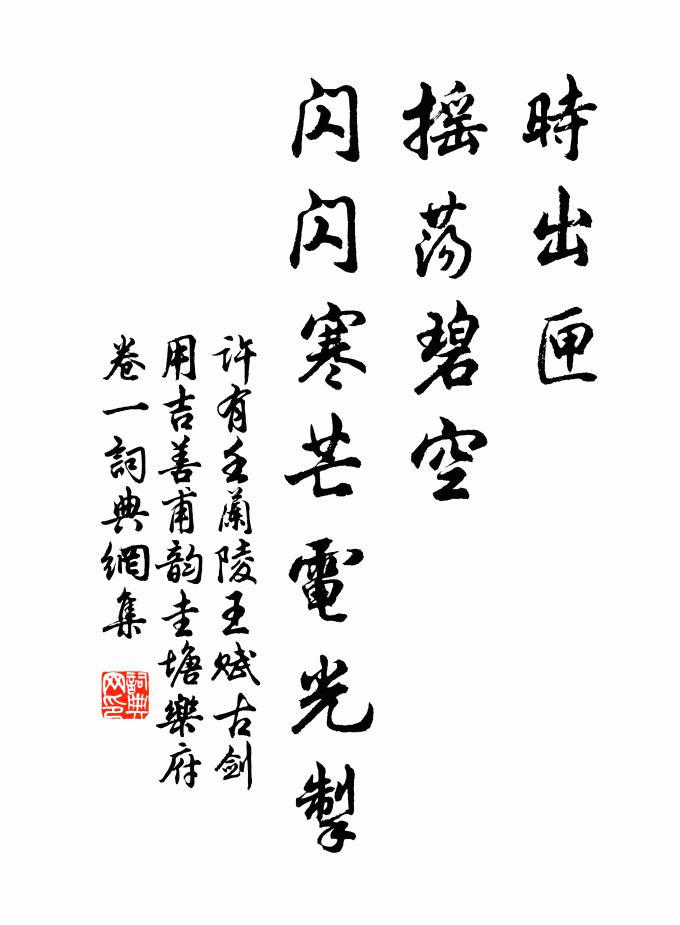 時出匣
摇荡碧空
闪闪寒芒電光掣
许有壬蘭陵王赋古剑
用吉善甫韵圭塘樂府
卷一詞典網集
詞典
网印